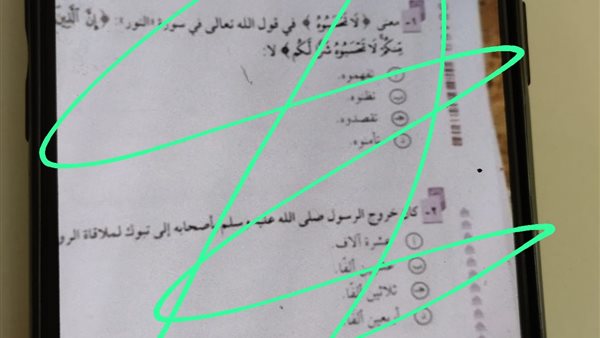 ١- معنى ﴿لَا تَحْسَبُوهُ﴾ في قول الله تعالى في سورة «النور»: ﴿إِنَّ الَّذِينَ
مِنكُمْ لَا تَحْسَبُوهُ شَرًّا لَّكُم﴾ لا:
أ تفهموه.
ب تظنوه.
ج تقصدوه.
د تأمنوه.
٢- كان خروج الرسول صلى الله عليه وسلم وأصحابه إلى تبوك لملاقاة الروم
أ عشرة آلاف.
ب عشرين ألفًا.
ج ثلاثين ألفًا.
د أربعين ألفًا.